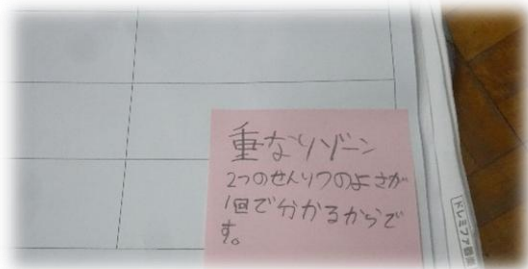 重なりゾーン
2つのせんりつのよさが
1回で分かるからで
す。
ドレミファ